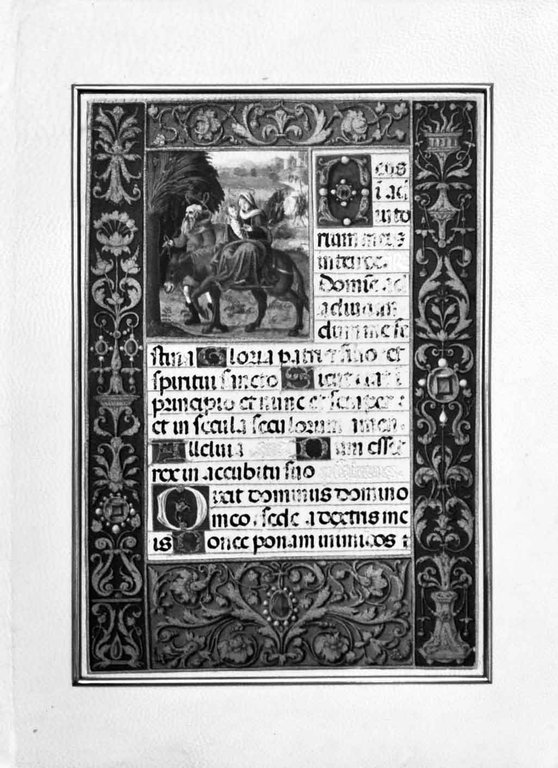 eus
i ad
iuto
rium meus
intende.
Domine ad
adiuuan
dum me fe
stina Gloria patri et filio et
spiritui sancto Sicut erat i
principio et nunc et semper
et in secula seculorum amen
Alleluia Dum esse
rex in accubitu suo
Dixit dominus domino
meo sede a dextris me
is Donec ponam inimicos